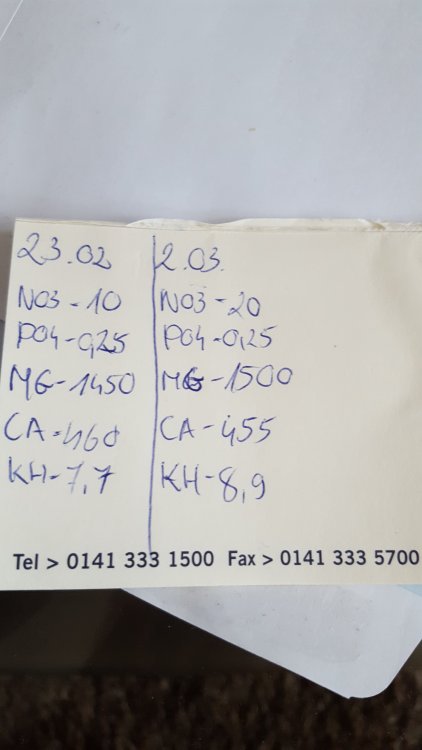 23.02
NO3-10
PO4-0,25
MG-1450
CA-460
KH-7,7
2.03.
NO3-20
PO4-0,25
MG-1500
CA-455
KH-8,9
Tel > 0141 333 1500 Fax > 0141 333 5700